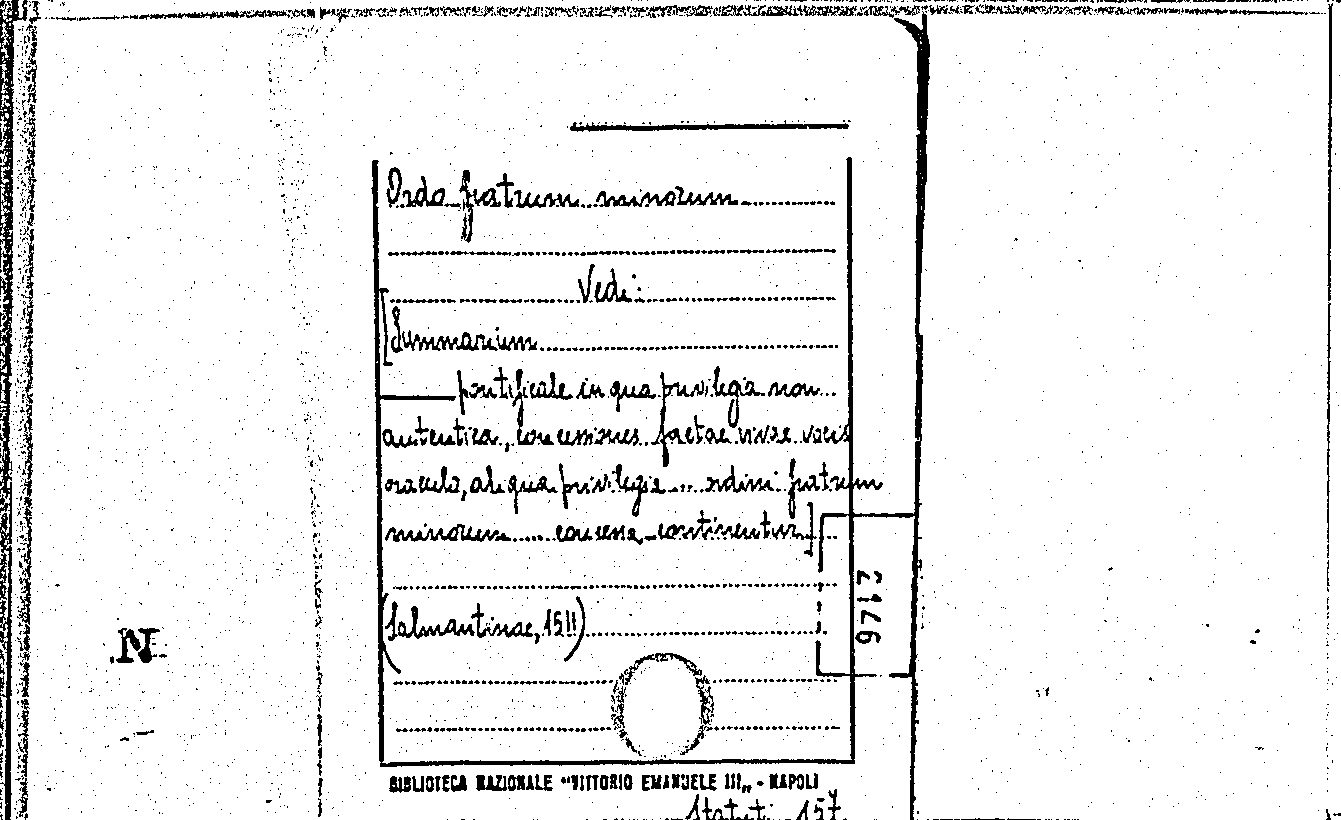 Ordo fratrum minorum
Vedi:
[Summarium
pontificale in qua privilegia non...
autentica, concessiones factae vivae vocis
oraculo, aliqua privilegia... ordini fratrum
minorum.... concessa continentur]
(Salmantinae, 1511)
2176
N
BIBLIOTECA NAZIONALE "VITTORIO EMANUELE III„ - NAPOLI
Statuti 157